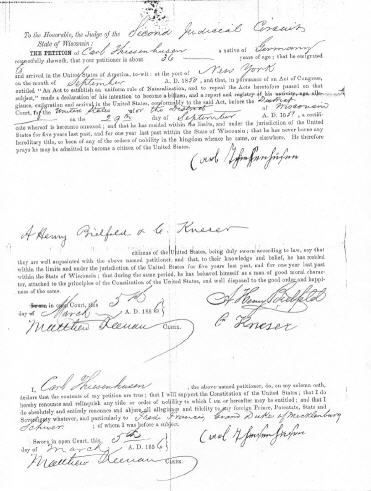 To the Honorable, the Judge of the Second Judicial Circuit
State of Wisconsin:
THE PETITION of Carl Thiesenhusen a native of Germany
respectfully sheweth, that your petitioner is about 36 years of age; that he emigrated
to and arrived in the United States of America, to-wit: at the port of New York
on the month of September A. D. 1850, and that, in pursuance of an Act of Congress,
entitled, "An Act to establish an uniform rule of Naturalization, and to repeal the Acts heretofore passed on that
subject," made a declaration of his intention to become a citizen, and a report and registry of his nativity, age,
allegiance, emigration and arrival in the United States, conformably to the said Act, before the District
Court, for the United States for the District Wisconsin
on the 29th day of September A. D. 185, a certifi-
cate whereof is hereunto annexed; and that he has resided within the limits, and under the jurisdiction of the United
States for five years last past, and for one year last past within the State of Wisconsin; that he has never borne any
hereditary title, or been of any of the orders of nobility in the kingdom whence he came, or elsewhere. He therefore
prays he may be admitted to become a citizen of the United States.
Carl Thiesenhusen
A Henry Bielfeld & C. Kneser
citizens of the United States, being duly sworn according to law, say that
they are well acquainted with the above named petitioner, and that, to their knowledge and belief, he has resided
within the limits and under the jurisdiction of the United States for five years last past, and for one year last past
within the State of Wisconsin; that during the same period, he has behaved himself as a man of good moral charac-
ter, attached to the principles of the Constitution of the United States, and well disposed to the good order and happi-
ness of the same.
Sworn in open Court, this 5th
day of March A. D. 1856
Matthew Keenan Clerk.
A Henry Bielfeld
C Kneser
I, Carl Thiesenhusen, the above named petitioner, do, on my solemn oath,
declare that the contents of my petition are true; that I will support the Constitution of the United States; that I do
hereby renounce and relinquish any title or order of nobility to which I am or hereafter may be entitled; and that I
do absolutely and entirely renounce and abjure all allegiance and fidelity to any foreign Prince, Potentate, State and
Sovereignty whatever, and particularly to Fred Francis, Grand Duke of Mecklenburg
Schwer ; of whom I was before a subject.
Sworn in open Court, this 5th
day of March A. D. 1856
Matthew Keenan Clerk.
Carl Thiesenhusen